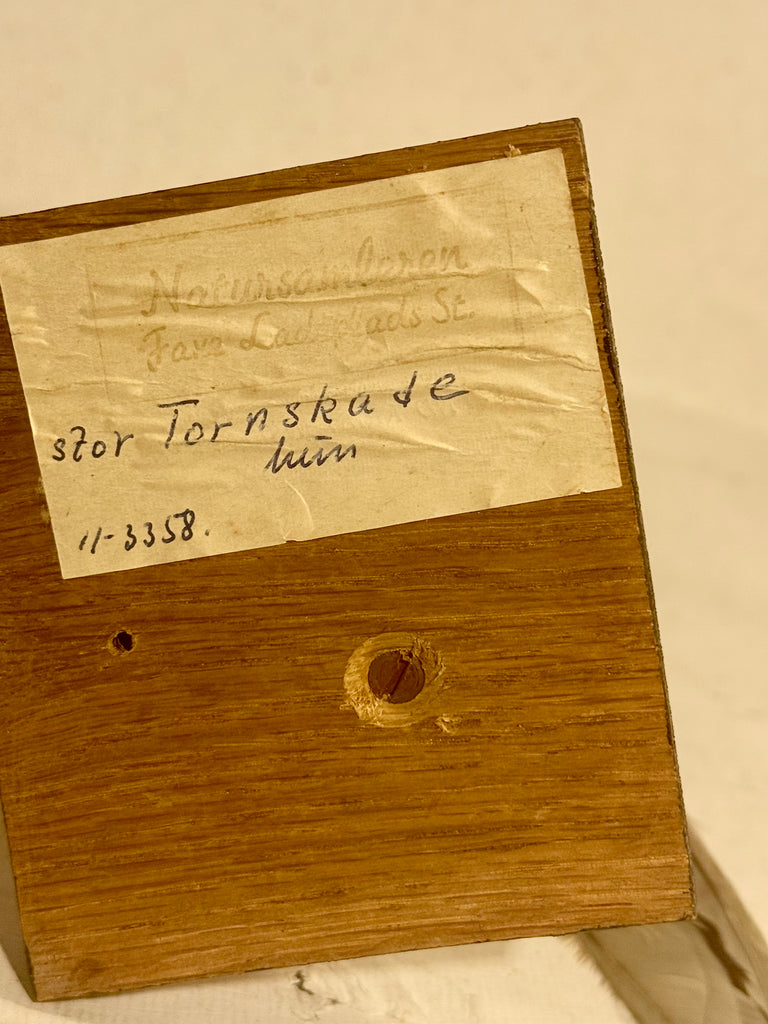 Natursamleren
Faxe Ladeplads St.
stor Tornskade
hun
11-3358.